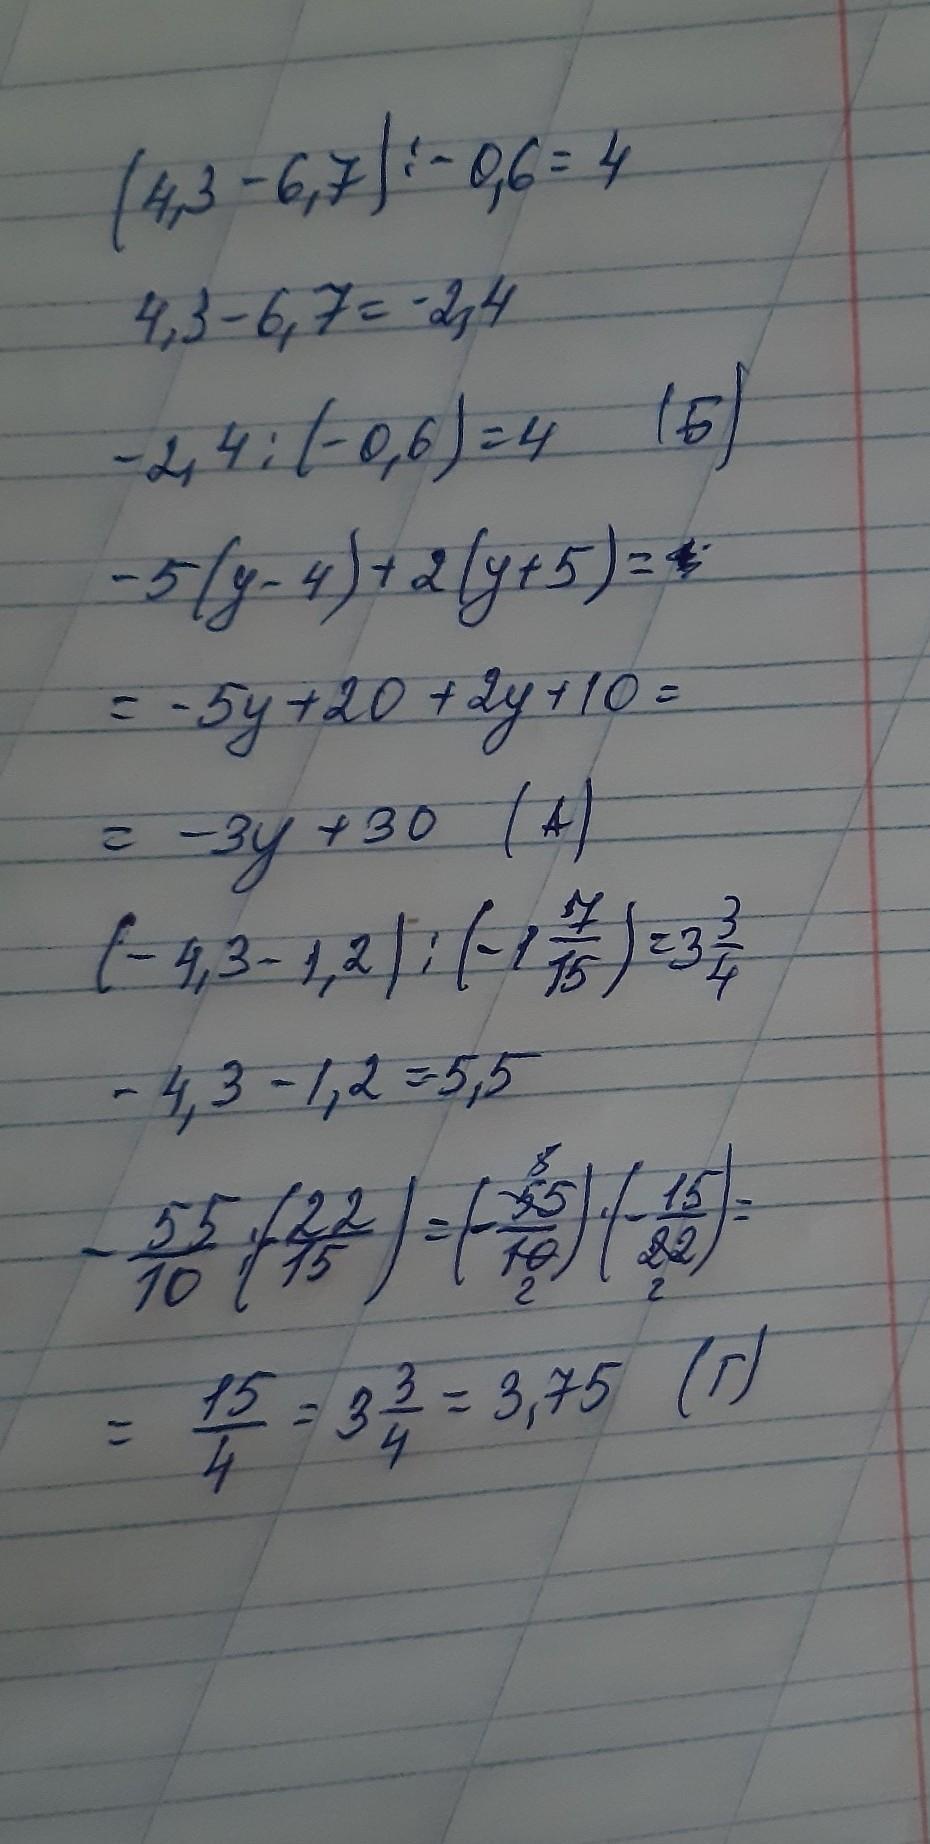 (4,3-6,7):-0,6=4
4,3-6,7=-2,4
-2,4:(-0,6)=4 (Б)
-5(y-4)+2(y+5)=
=-5y+20+2y+10=
= -3y+30 (А)
(-4,3-1,2):(-1 7/15)=3 3/4
-4,3-1,2=-5,5
-55/10:(22/15)=(-55/10)·(-15/22)=
= 15/4 = 3 3/4 = 3,75 (Г)